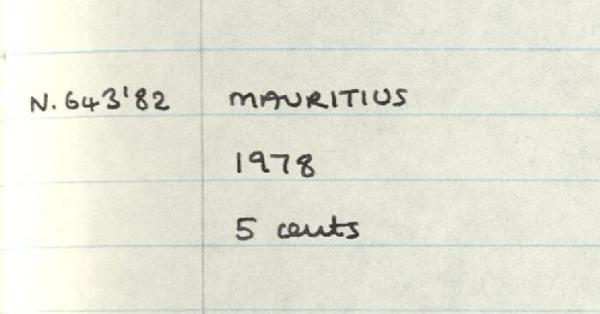 N.643'82 MAURITIUS
1978
5 cents